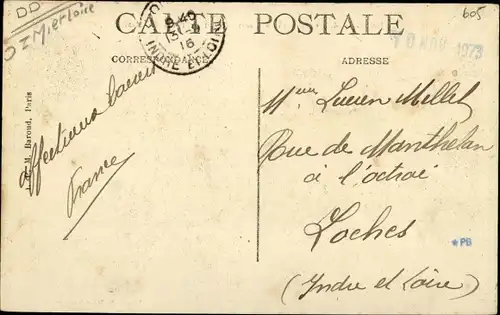 DD
605
CARTE POSTALE
9*40
31-8
16
INDRE ET LOIRE
10 NOV 1973
CORRESPONDANCE
ADRESSE
M. Baroud, Paris
Affectueux
France
Lucien Millet
Rue de Manthelan
à l'octroi
Loches
*PB
(Indre et Loire)